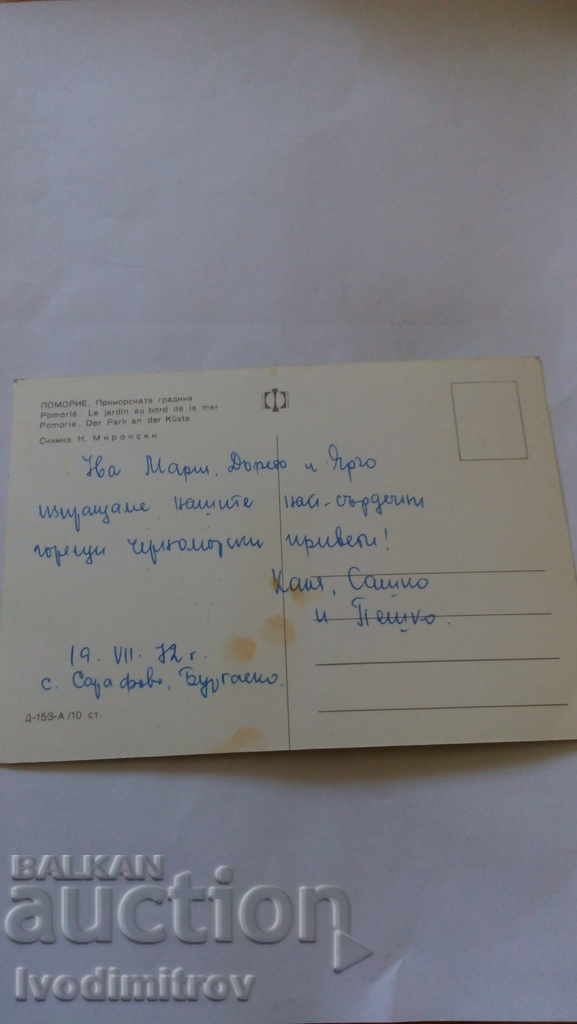 ПОМОРИЕ. Приморската градина
Pomorié. Le jardin au bord de la mer
Pomorie. Der Park an der Küste
Снимка Н. Мирчески
На Марш, и Ярго
изпращаме нашите най-сърдечни
горещи черноморски привети!
Катя, Сашко
и Пешко.
19. VII. 72 г.
с. Сарафово, Бургаско.
Д-153-А/10 ст.
BALKAN
auction
Ivodimitrov